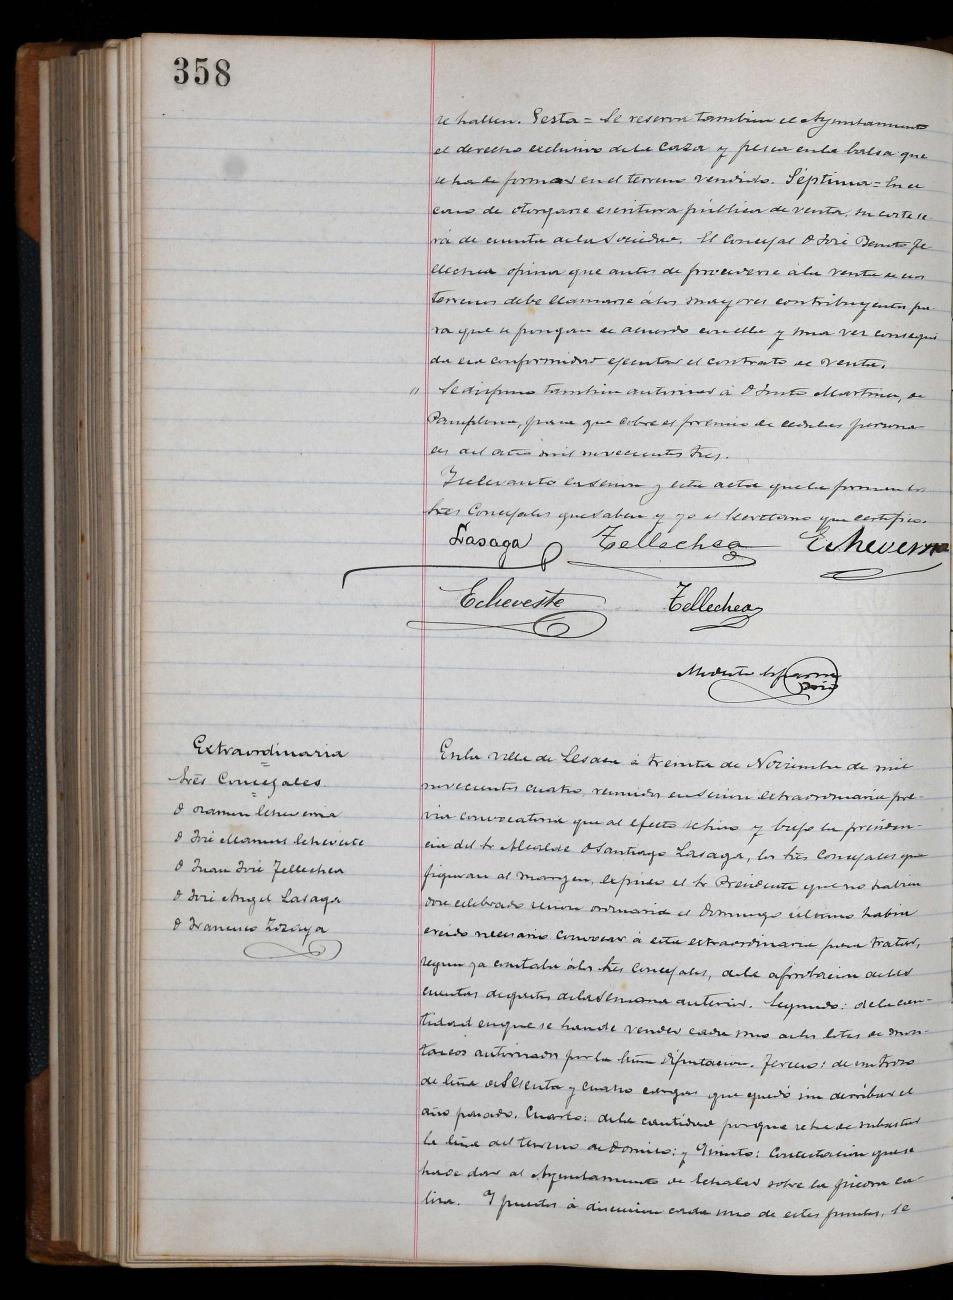 358
se hallen. Sesta = Se reserva tambien el Ayuntamiento
el derecho exclusivo de la caza y pesca en la balsa que
se ha de formar en el terreno vendido. Séptima = En el
caso de otorgarse escritura pública de venta, su coste se-
rá de cuenta de la Sociedad. El Concejal D José Benito Te
llechea opina que antes de procederse á la venta de los
terrenos debe llamarse á los mayores contribuyentes pa
ra que se pongan de acuerdo con ella y una vez consegui
da esa conformidad ejecutar el contrato de venta.
" Se dispuso tambien autorizar á D Justo Martinez, de
Pamplona, para que cobre el premio de cédulas persona
les del año mil novecientos tres.
Y se levantó la sesion y esta acta que la firman los
Sres Concejales que saben y yo el Secretario que certifico.
Lasaga Tellechea Echeverria
Echeveste Tellechea
Modesto Esparza
Srio
Extraordinaria
Sres Concejales
D Ramon Echeverria
D José Manuel Echeveste
D Juan José Tellechea
D José Angel Lasaga
D Francisco Zozaya
En la villa de Lesaca á treinta de Noviembre de mil
novecientos cuatro, reunidos en sesion extraordinaria pre-
via convocatoria que al efecto se hizo y bajo la presiden-
cia del Sr Alcalde D Santiago Lasaga, los Sres Concejales que
figuran al margen, expuso el Sr Presidente que no habien
dose celebrado sesion ordinaria el Domingo último habia
creido necesario convocar á esta extraordinaria para tratar,
segun ya constaba á los Sres Concejales, de la aprobacion de las
cuentas de gastos de la semana anterior. Segundo: de la can-
tidad en que se han de vender cada uno de los lotes de mon-
tazcos autorizados por la Excma Diputacion. Tercero: de un trozo
de leña de sesenta y cuatro cargas que quedó sin derribar el
año pasado. Cuarto: de la cantidad porque se ha de subastar
la leña del terreno de Domico: y Quinto: Contestacion que se
hace dar al Ayuntamiento de Echalar sobre la piedra ca-
liza. Y puestos á discusion cada uno de estos puntos, se